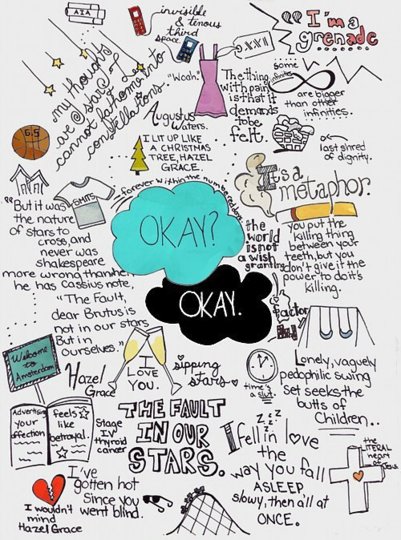 AIA
invisible
& tenous
third
space
"I'm a
grenade
my thoughts
are stars I
cannot fathom into
constellations.
"Woah."
The thing
with pain
is that it
demands
to be
felt.
some
infinities
are bigger
than other
infinities.
6.5
Augustus
Waters.
I LIT UP LIKE
A CHRISTMAS
TREE, HAZEL
GRACE.
last shred
of dignity.
forever within the numbered days
It's a
metaphor.
"But it was
the nature
of stars to
cross, and
never was
shakespeare
more wrong than when
he has Cassius note,
"The Fault,
dear Brutus is
not in our stars
But in
ourselves."
OKAY?
OKAY.
the
world
is not
a wish
granting
factory
you put
the killing
thing between
your teeth, but you
don't give it the
power to do it's
killing.
Welcome
to
Amsterdam
I
LOVE
YOU.
sipping
stars
time's
a slut
Lonely, vaguely
pedophilic swing
set seeks the
butts of
children...
Hazel
Grace
Advertising
your
affection
feels
like
betrayal.
Stage
IV
thyroid
cancer
THE FAULT
IN OUR
STARS.
z z z z
I fell in love
the
way you fall
ASLEEP,
slowy, then all at
ONCE.
the
LITERAL
heart
of Jesus
I've
gotten hot
Since you
went blind.
I wouldn't
mind
Hazel Grace